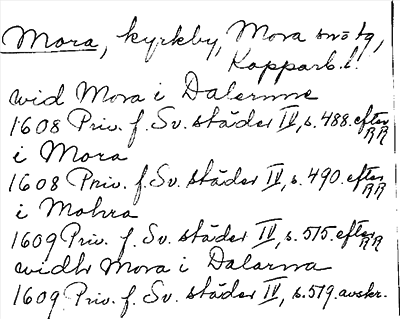 Mora, kyrkby, Mora sns tg,
Kopparb. l.
wid Mora i Dalerne
1608 Priv. f. Sv. städer IV, s. 488. efter RR
i Mora
1608 Priv. f. Sv. städer IV, s. 490. efter RR
i Mohra
1609 Priv. f. Sv. städer IV, s. 515. efter RR
widh Mora i Dalarna
1609 Priv. f. Sv. städer IV, s. 519. avskr.